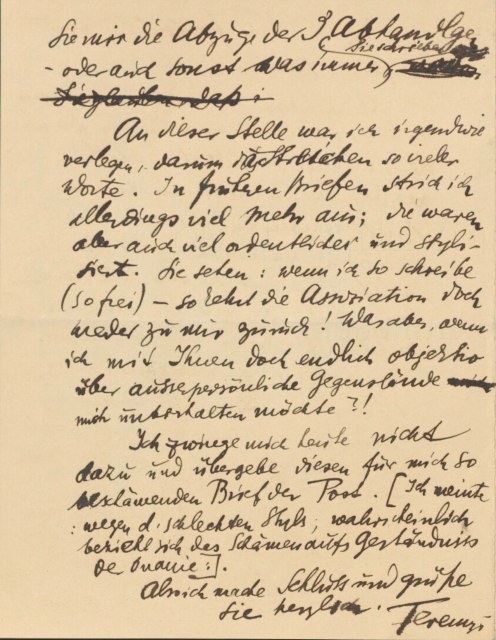 Sie mir die Abzüge der 3 Abhandlge
Sie schrieben
– oder auch sonst was immer
Sie glauben daß i
An dieser Stelle war ich irgendwie
verlegen, darum das Streichen so vieler
Worte. In früheren Briefen strich ich
allerdings viel mehr aus; die waren
aber auch viel ordentlicher und styli-
siert. Sie sehen: wenn ich so schreibe
(so frei) – so kehrt die Assoziation doch
wieder zu mir zurück! Was aber, wenn
ich mit Ihnen doch endlich objektiv
über aussepersönliche Gegenstände
mich unterhalten möchte?!
Ich zwinge mich heute nicht
dazu und übergebe diesen für mich so
beschämenden Brief der Post. [Ich meinte
: wegen d. schlechten Styls, wahrscheinlich
bezieht sich das Schämen aufs Geständniss
der Onanie:].
Also ich mache Schluss und grüße
Sie herzlich. Ferenczi